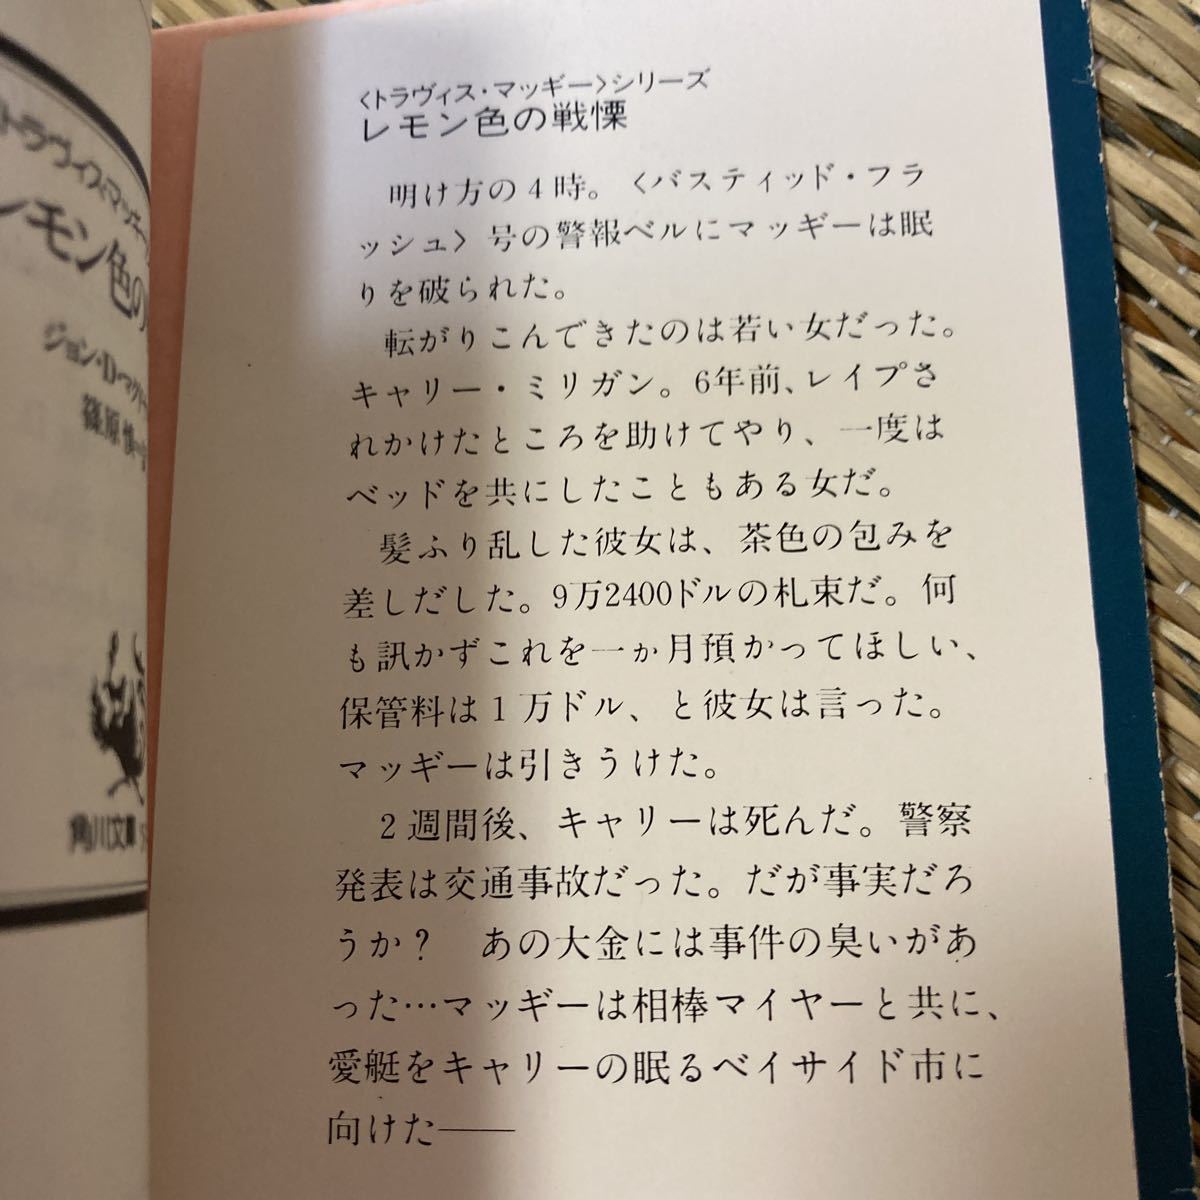 〈トラヴィス・マッギー〉シリーズ
レモン色の戦慄
明け方の4時。〈バスティッド・フラ
ッシュ〉号の警報ベルにマッギーは眠
りを破られた。
転がりこんできたのは若い女だった。
キャリー・ミリガン。6年前、レイプさ
れかけたところを助けてやり、一度は
ベッドを共にしたこともある女だ。
髪ふり乱した彼女は、茶色の包みを
差しだした。9万2400ドルの札束だ。何
も訊かずこれを一か月預かってほしい、
保管料は1万ドル、と彼女は言った。
マッギーは引きうけた。
2週間後、キャリーは死んだ。警察
発表は交通事故だった。だが事実だろ
うか？　あの大金には事件の臭いがあ
った…マッギーは相棒マイヤーと共に、
愛艇をキャリーの眠るベイサイド市に
向けた――
トラヴィス・マッギー
レモン色の
ジョン・D・マクド
篠原慎
角川文庫